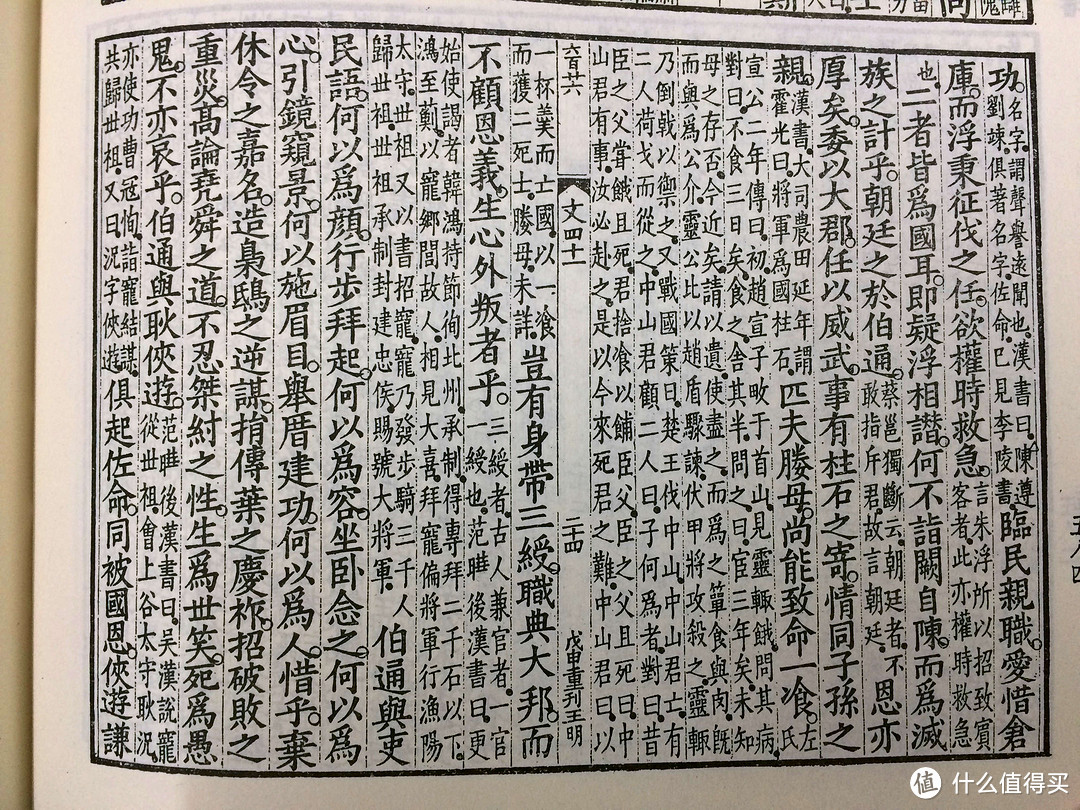 功。名字。謂聲譽遠聞也。漢書曰。陳遵。
劉竦。俱著名字。佐命。已見李陵書。
臨民親職。愛惜倉
庫。而浮秉征伐之任。欲權時救急。
言朱浮所以招致賓
客者。此亦權時救急
也。二者皆爲國耳。即疑浮相譖。何不詣闕自陳。而爲滅
族之計乎。朝廷之於伯通。
蔡邕獨斷云。朝廷者。不
敢指斥君。故言朝廷。
恩亦
厚矣。委以大郡。任以威武。事有柱石之寄。情同子孫之
親。
漢書。大司農田延年謂
霍光曰。將軍爲國柱石。
匹夫媵母。尚能致命一飡。
左
氏
宣公二年傳曰。初。趙宣子畋于首山。見靈輒餓。問其病。
對曰。不食三日矣。食之。舍其半。問之。曰。宦三年矣。未知
母之存否。今近矣。請以遺。使盡之。而爲之簞食與肉。既
而與爲公介。靈公以趙盾驟諫。伏甲將攻殺之。靈輒
乃倒戟以禦之。又戰國策曰。楚王伐中山。中山君亡。有
二人荷戈而從之。中山君顧二人曰。子何爲者。對曰。昔
臣之父嘗餓且死。君捨飡以餔臣父。臣之父且死曰。中
山君有事。汝必赴之。是以今來死君之難。中山君曰。以
六百廿六
文四十一
二十四
戊申重刊王明
一杯羹而亡國。以一飡
而獲二死士。媵母。未詳。
豈有身帶三綬。職典大邦。而
不顧恩義。生心外叛者乎。
三綬者。古人兼官者。一官
一綬也。范曄後漢書曰。更
始使謁者韓鴻持節徇北州。承制。得專拜二千石以下。
鴻至薊。以寵鄉閭故人。相見大喜。拜寵偏將軍。行漁陽
太守。世祖又以書招寵。寵乃發步騎三千人
歸世祖。世祖承制封建忠侯。賜號大將軍。
伯通與吏
民語。何以爲顏。行步拜起。何以爲容。坐卧念之。何以爲
心。引鏡窺景。何以施眉目。舉厝建功。何以爲人。惜乎。棄
休令之嘉名。造梟鴟之逆謀。捐傳葉之慶祚。招破敗之
重災。高論堯舜之道。不忍桀紂之性。生爲世笑。死爲愚
鬼。不亦哀乎。伯通與耿俠遊。
范曄後漢書曰。吳漢說寵
從世祖。會上谷太守耿況。
亦使功曹寇恂詣寵結謀。
共歸世祖。又曰。況字俠遊。
俱起佐命。同被國恩。俠遊謙
值 什么值得买